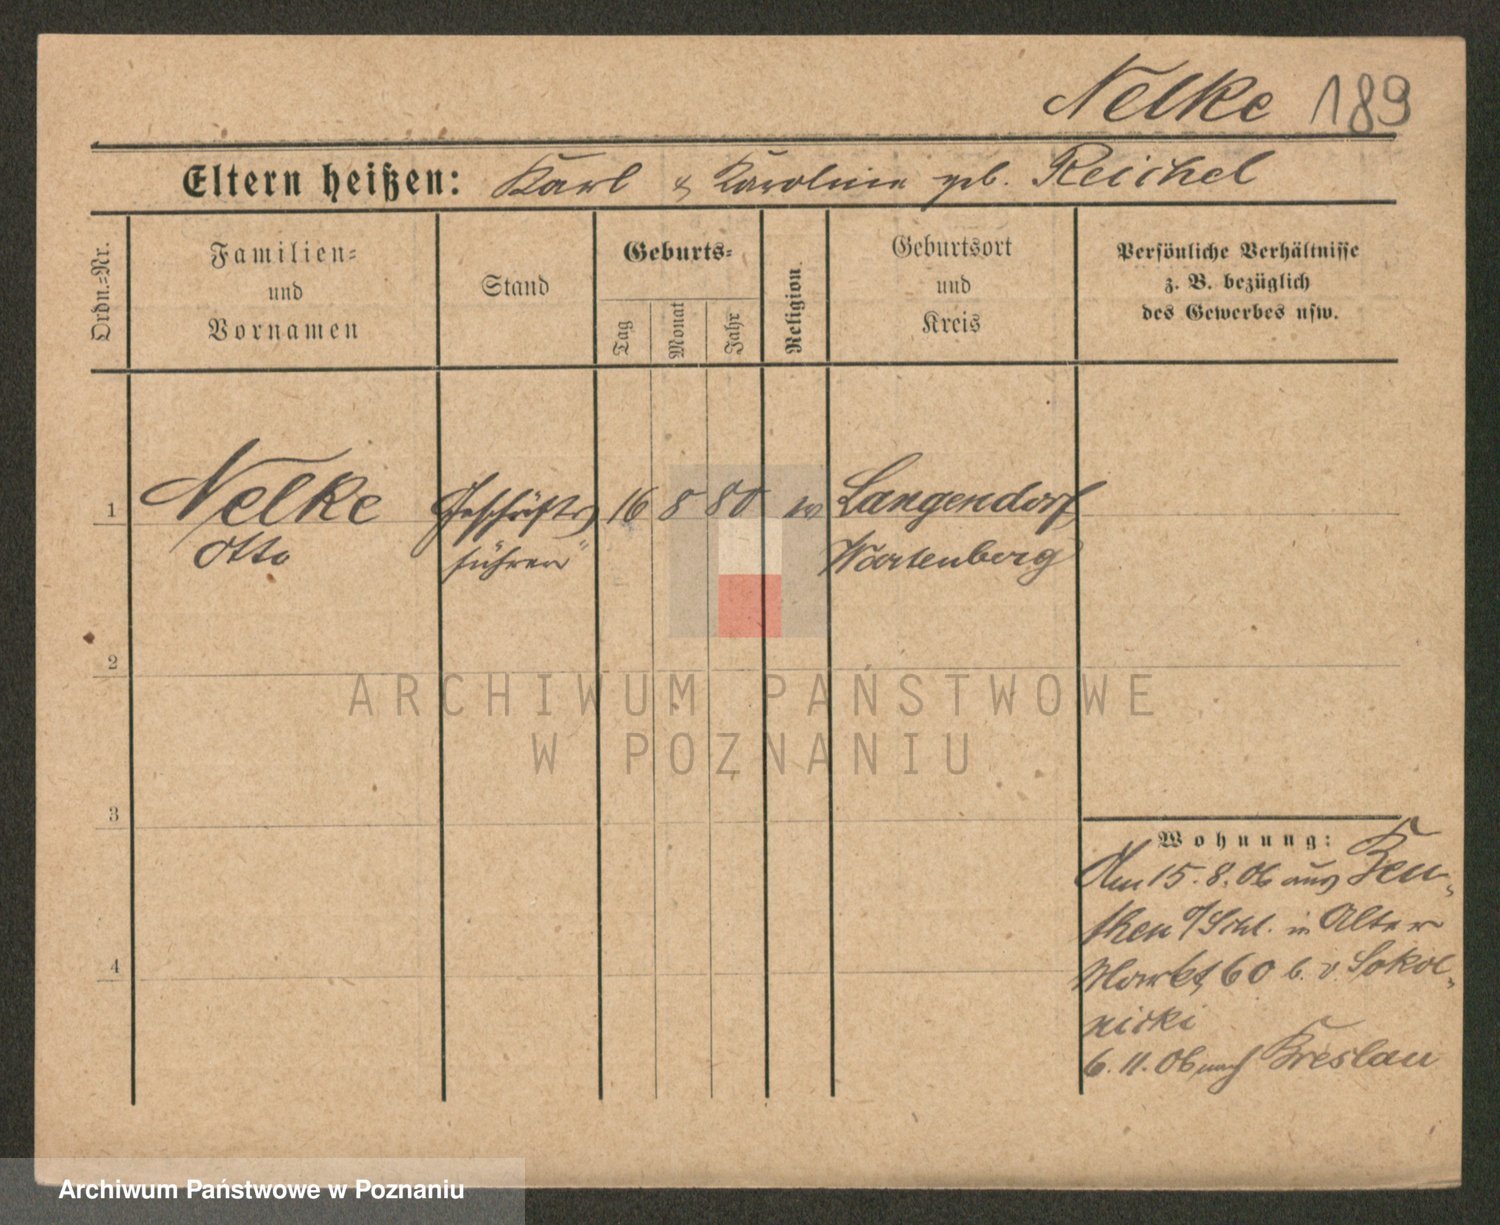 Nelke 189
Eltern heißen: Karl & Karoline geb. Reichel
Ordn.=Nr.
Familien=
und
Vornamen
Stand
Geburts=
Tag
Monat
Jahr
Religion.
Geburtsort
und
Kreis
Persönliche Verhältnisse
z. B. bezüglich
des Gewerbes usw.
1 Nelke Geschäfts 16 8 80 Langendorf
Otto führer Wartenberg
2
3
4
Wohnung:
Am 15.8.06 aus Beu-
then O/Schl. in Alter
Markt 60 b. v. Sokol-
nicki
6.11.06 nach Breslau
ARCHIWUM PAŃSTWOWE
W POZNANIU
Archiwum Państwowe w Poznaniu